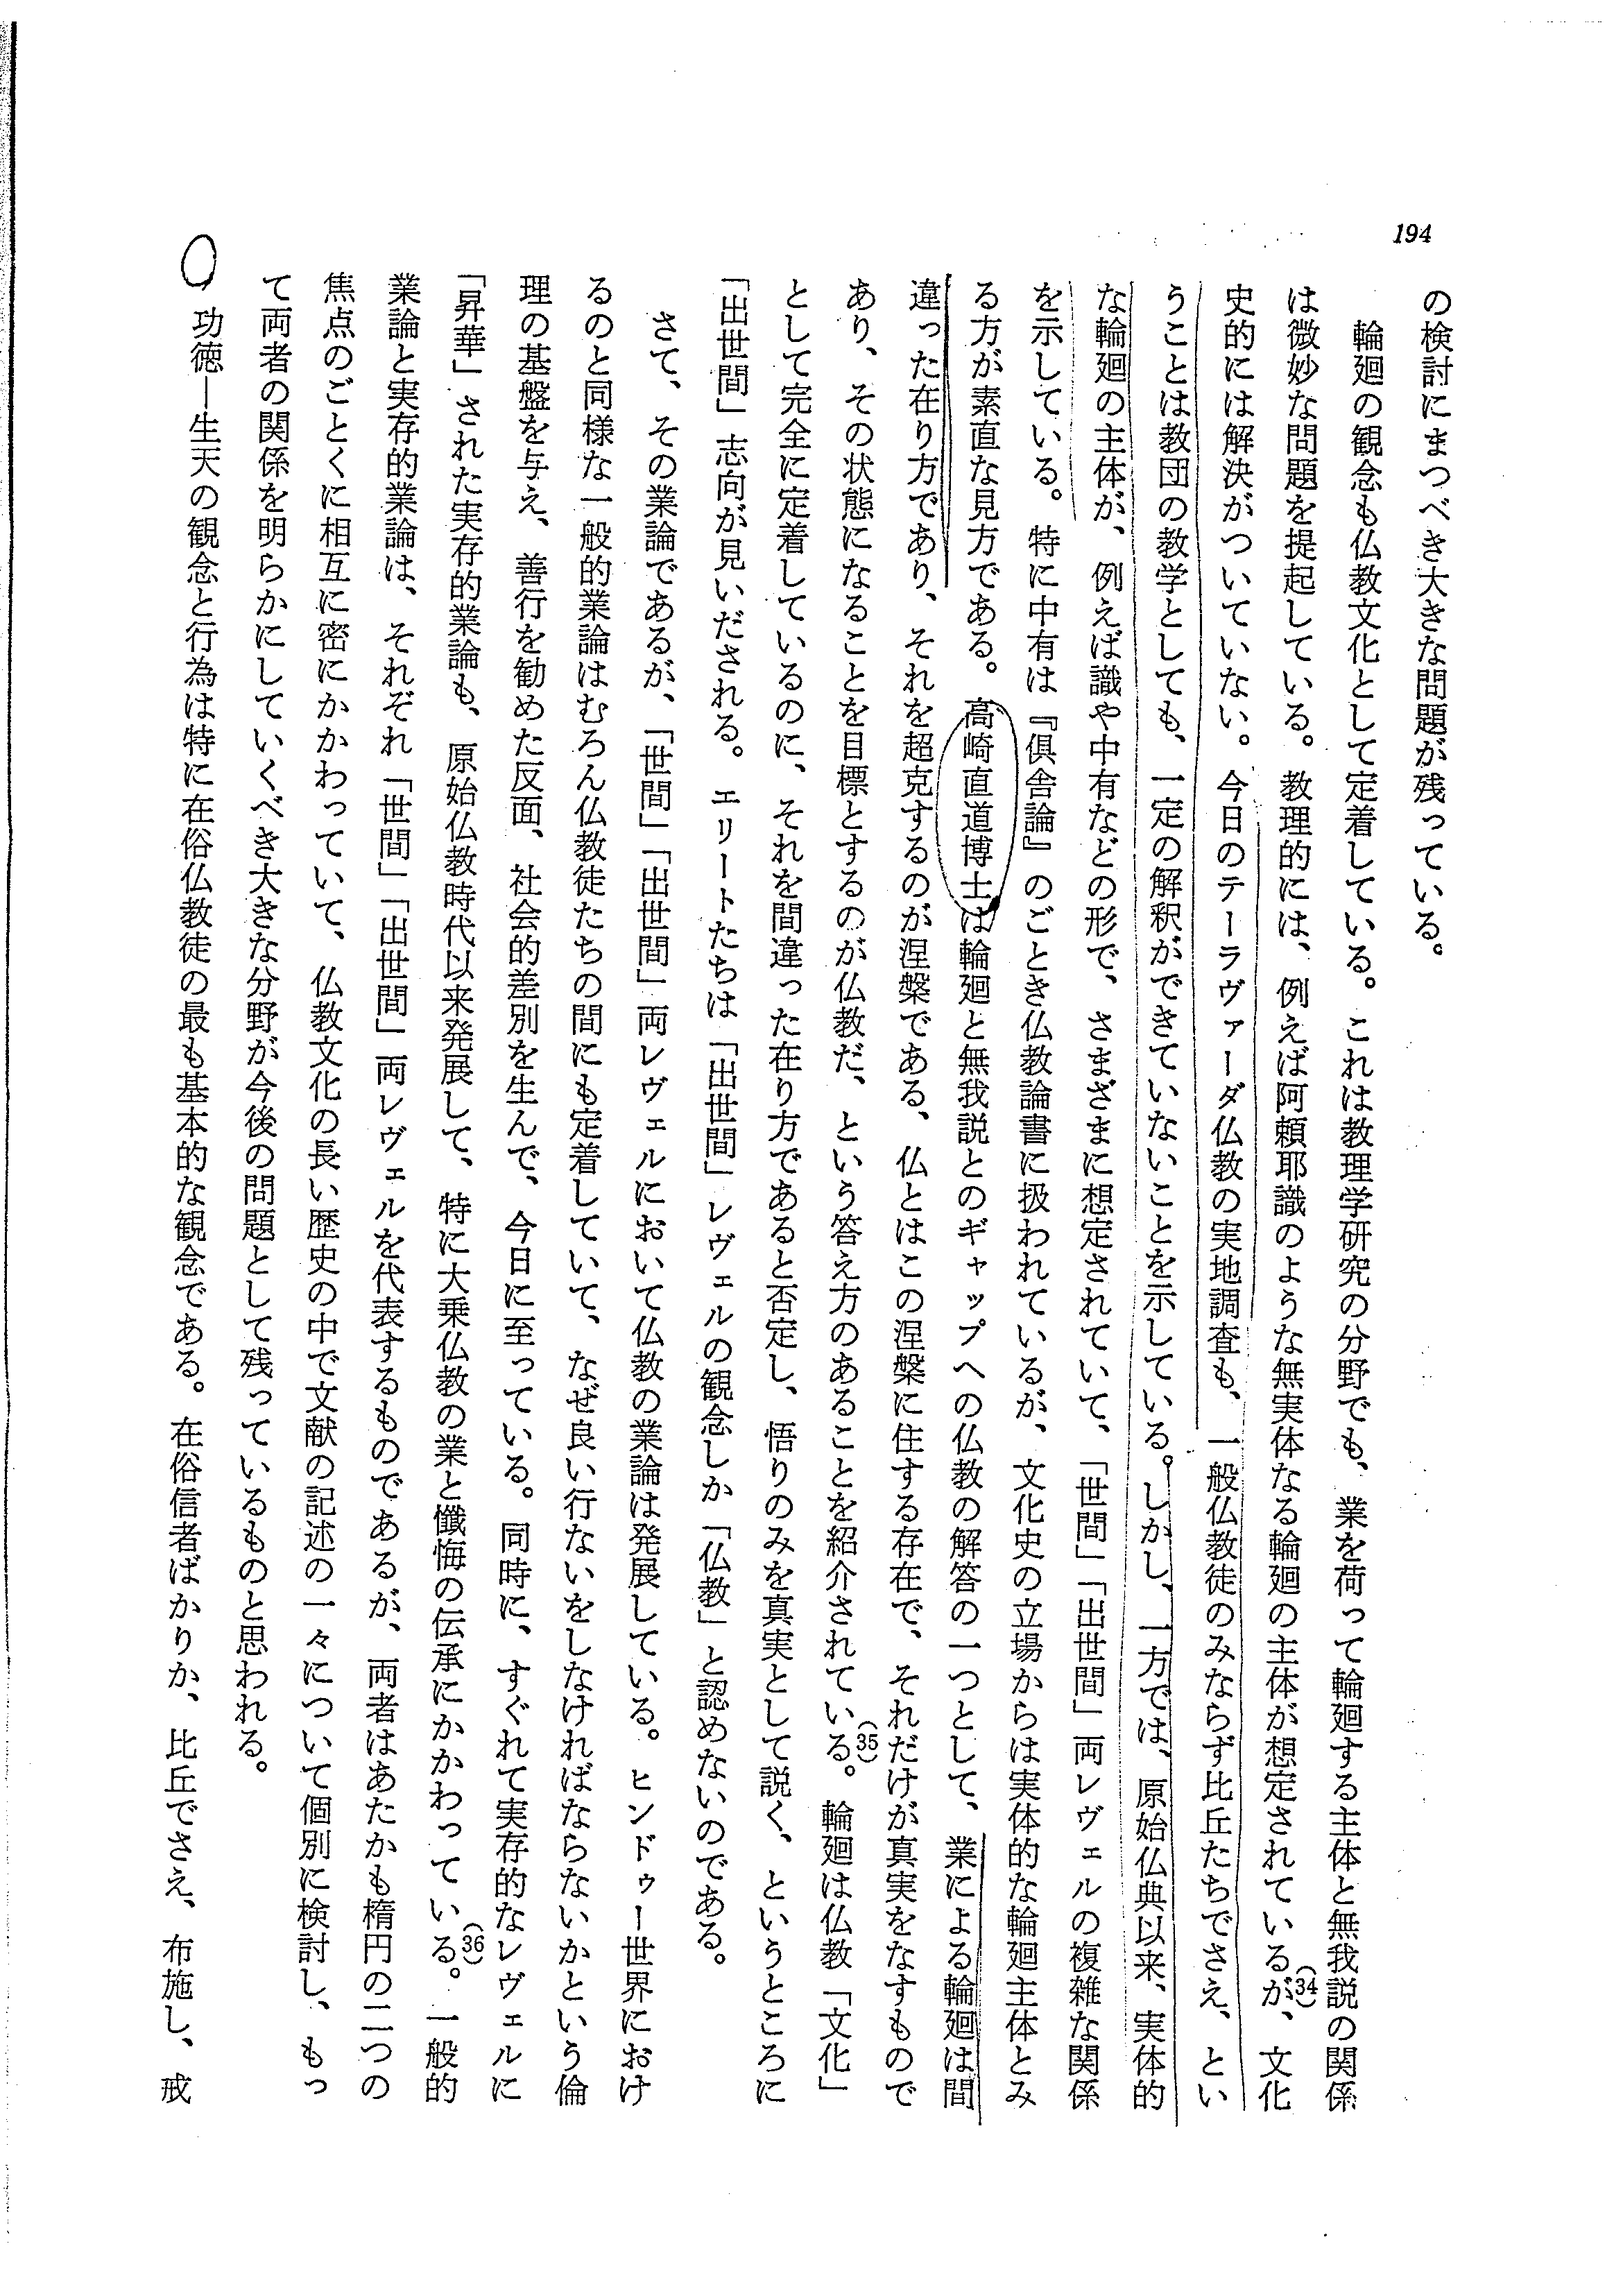 194
の検討にまつべき大きな問題が残っている。
輪廻の観念も仏教文化として定着している。これは教理学研究の分野でも、業を荷って輪廻する主体と無我説の関係
は微妙な問題を提起している。教理的には、例えば阿頼耶識のような無実体なる輪廻の主体が想定されているが、(34)文化
史的には解決がついていない。今日のテーラヴァーダ仏教の実地調査も、一般仏教徒のみならず比丘たちでさえ、とい
うことは教団の教学としても、一定の解釈ができていないことを示している。しかし、一方では、原始仏典以来、実体的
な輪廻の主体が、例えば識や中有などの形で、さまざまに想定されていて、「世間」「出世間」両レヴェルの複雑な関係
を示している。特に中有は『倶舎論』のごとき仏教論書に扱われているが、文化史の立場からは実体的な輪廻主体とみ
る方が素直な見方である。高崎直道博士は輪廻と無我説とのギャップへの仏教の解答の一つとして、業による輪廻は間
違った在り方であり、それを超克するのが涅槃である、仏とはこの涅槃に住する存在で、それだけが真実をなすもので
あり、その状態になることを目標とするのが仏教だ、という答え方のあることを紹介されている。(35)輪廻は仏教「文化」
として完全に定着しているのに、それを間違った在り方であると否定し、悟りのみを真実として説く、というところに
「出世間」志向が見いだされる。エリートたちは「出世間」レヴェルの観念しか「仏教」と認めないのである。
さて、その業論であるが、「世間」「出世間」両レヴェルにおいて仏教の業論は発展している。ヒンドゥー世界におけ
るのと同様な一般的業論はむろん仏教徒たちの間にも定着していて、なぜ良い行ないをしなければならないかという倫
理の基盤を与え、善行を勧めた反面、社会的差別を生んで、今日に至っている。同時に、すぐれて実存的なレヴェルに
「昇華」された実存的業論も、原始仏教時代以来発展して、特に大乗仏教の業と懺悔の伝承にかかわっている。(36)一般的
業論と実存的業論は、それぞれ「世間」「出世間」両レヴェルを代表するものであるが、両者はあたかも楕円の二つの
焦点のごとくに相互に密にかかわっていて、仏教文化の長い歴史の中で文献の記述の一々について個別に検討し、もっ
て両者の関係を明らかにしていくべき大きな分野が今後の問題として残っているものと思われる。
功徳―生天の観念と行為は特に在俗仏教徒の最も基本的な観念である。在俗信者ばかりか、比丘でさえ、布施し、戒